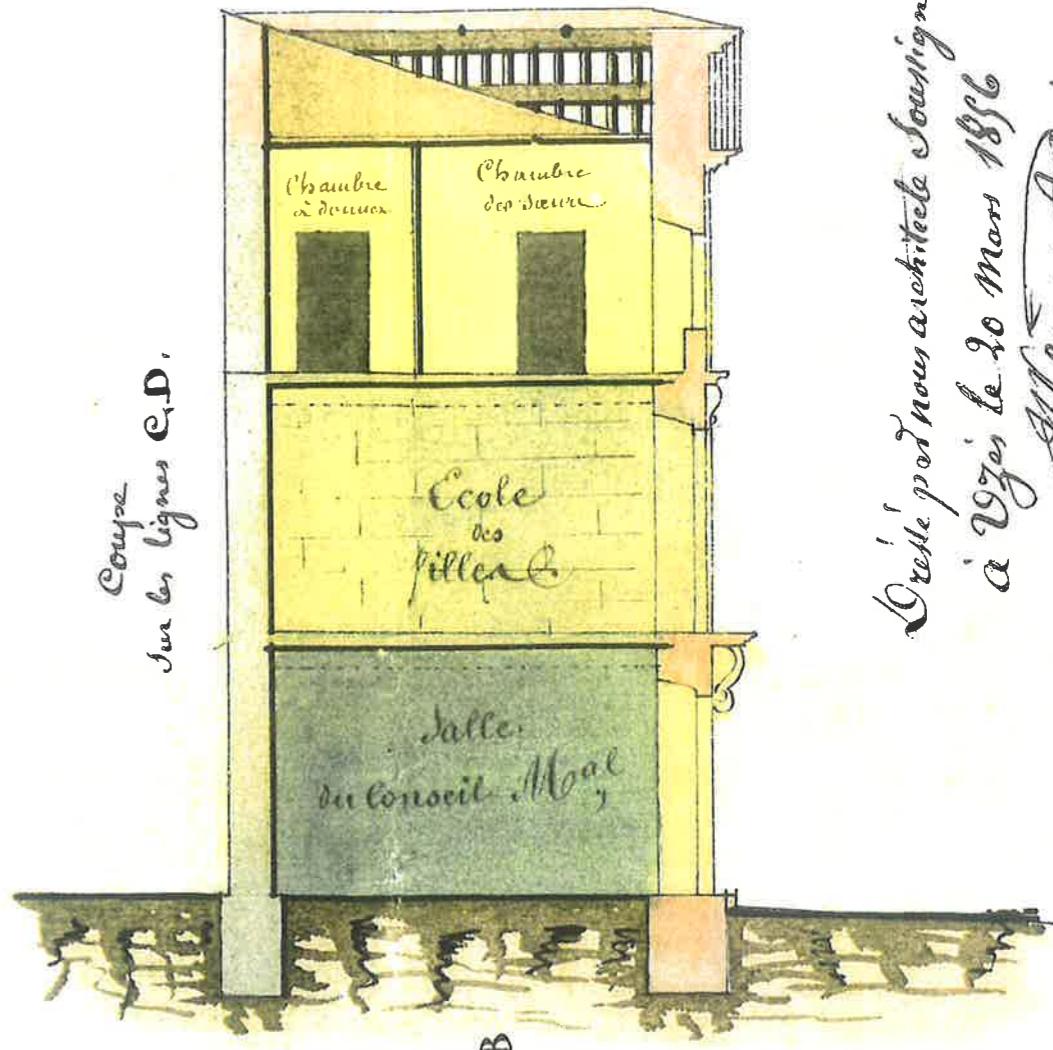 Coupe
sur les lignes C, D.
Chambre
à donner
Chambre
des Sœurs
Ecole
des
filles
Salle
du Conseil Mal
Dressé par nous architecte Soussign
à Uzès le 20 Mars 1856
B